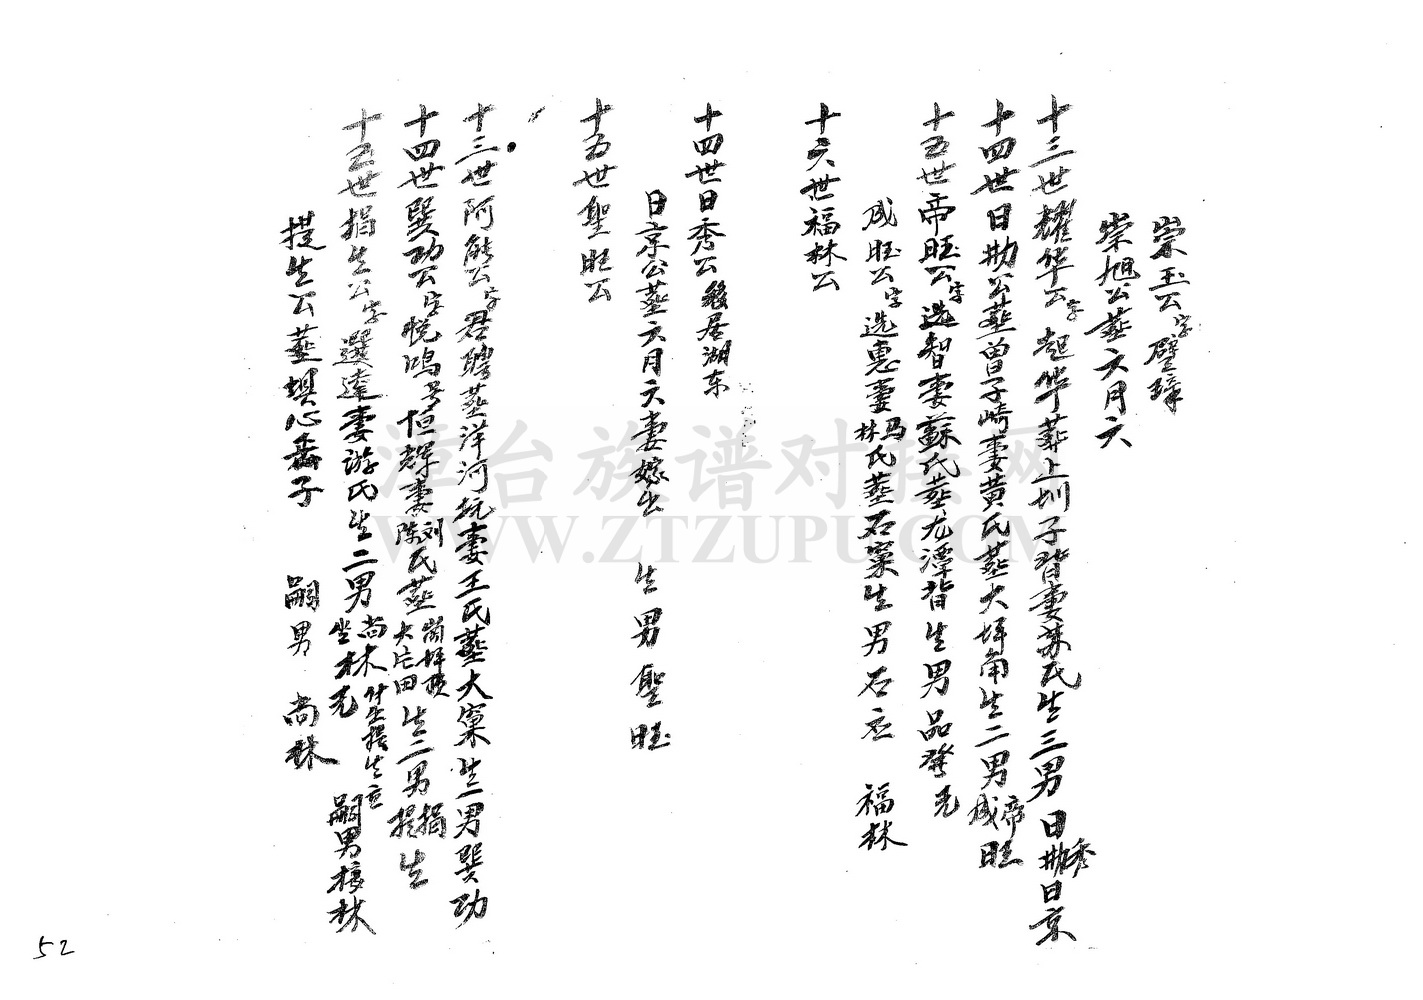 崇玉公字璧璋
崇旭公葬六月六
十三世耀华公字起华葬上圳子背妻苏氏生三男日勘日秀日京
十四世日勘公葬曾子崎妻黄氏葬大坪角生二男帝旺成旺
十五世帝旺公字选智妻蘇氏葬龙潭背生男品發
成旺公字选惠妻马林氏葬石窠生男石 福林
十六世福林公
十四世日秀公移居湖东
日京公葬六月六妻嫁出 生男聖旺
十五世聖旺公
十三世阿能公字君聘葬洋河坑妻王氏葬大窠生一男巽功
十四世巽功公字悦鳴号恒輝妻刘陈氏葬崗坪頂大片田生二男捐提生
十五世捐生公字選達妻游氏生二男尚林坐林 嗣男核林
提生公葬坝心 子 嗣男 尚林
漳台族谱对接网
WWW.ZTZUPU.COM
52